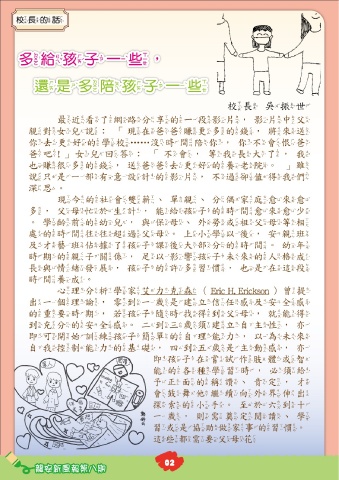 校長的話
多給孩子一些，
還是多陪孩子一些
校長 吳振世
最近看了網路分享的一段影片，影片中父
親對女兒說：「現在爸爸賺更多的錢，將來送
你去更好的學校……沒時間陪你，你不會恨爸
爸吧！」女兒回答：「不會，等我長大了，我
也賺很多的錢，送爸爸去更好的養老院。」雖
說只是一部有意設計的影片，不過卻值得我們
深思。
現今的社會雙薪、單親、分偶家庭愈來愈
多，父母忙於生計，能給孩子的時間愈來愈少
。學齡前的幼兒，與保母、外勞或祖父母等相
處的時間往往超過父母。上小學以後，安親班
及才藝班佔據了孩子課後大部分的時間。幼年
時期的親子關係，足以影響孩子未來的人格成
長與情緒發展，孩子的許多習慣，也是在這段
時間養成。
心理分析學家艾力克森（Eric H. Erickson）曾提
出一個理論，零到一歲是建立信任感及安全感
的重要時期，若孩子隨時找得到父母，就能得
到充分的安全感。二到三歲須建立自主性，亦
即可開始訓練孩子簡單的自理能力，以為未來
自我控制能力的基礎。四到五歲是主動感，亦
即孩子在嘗試作肢體或智
能的各種學習時，必須給
予正面的稱讚、肯定，才
會鼓舞他繼續向外界伸出
探索的小手。至於六到十
一歲，則需奠定閱讀、學
習或是協助做家事的習慣。
這些都需要父母花
龍安新風報第八期
02